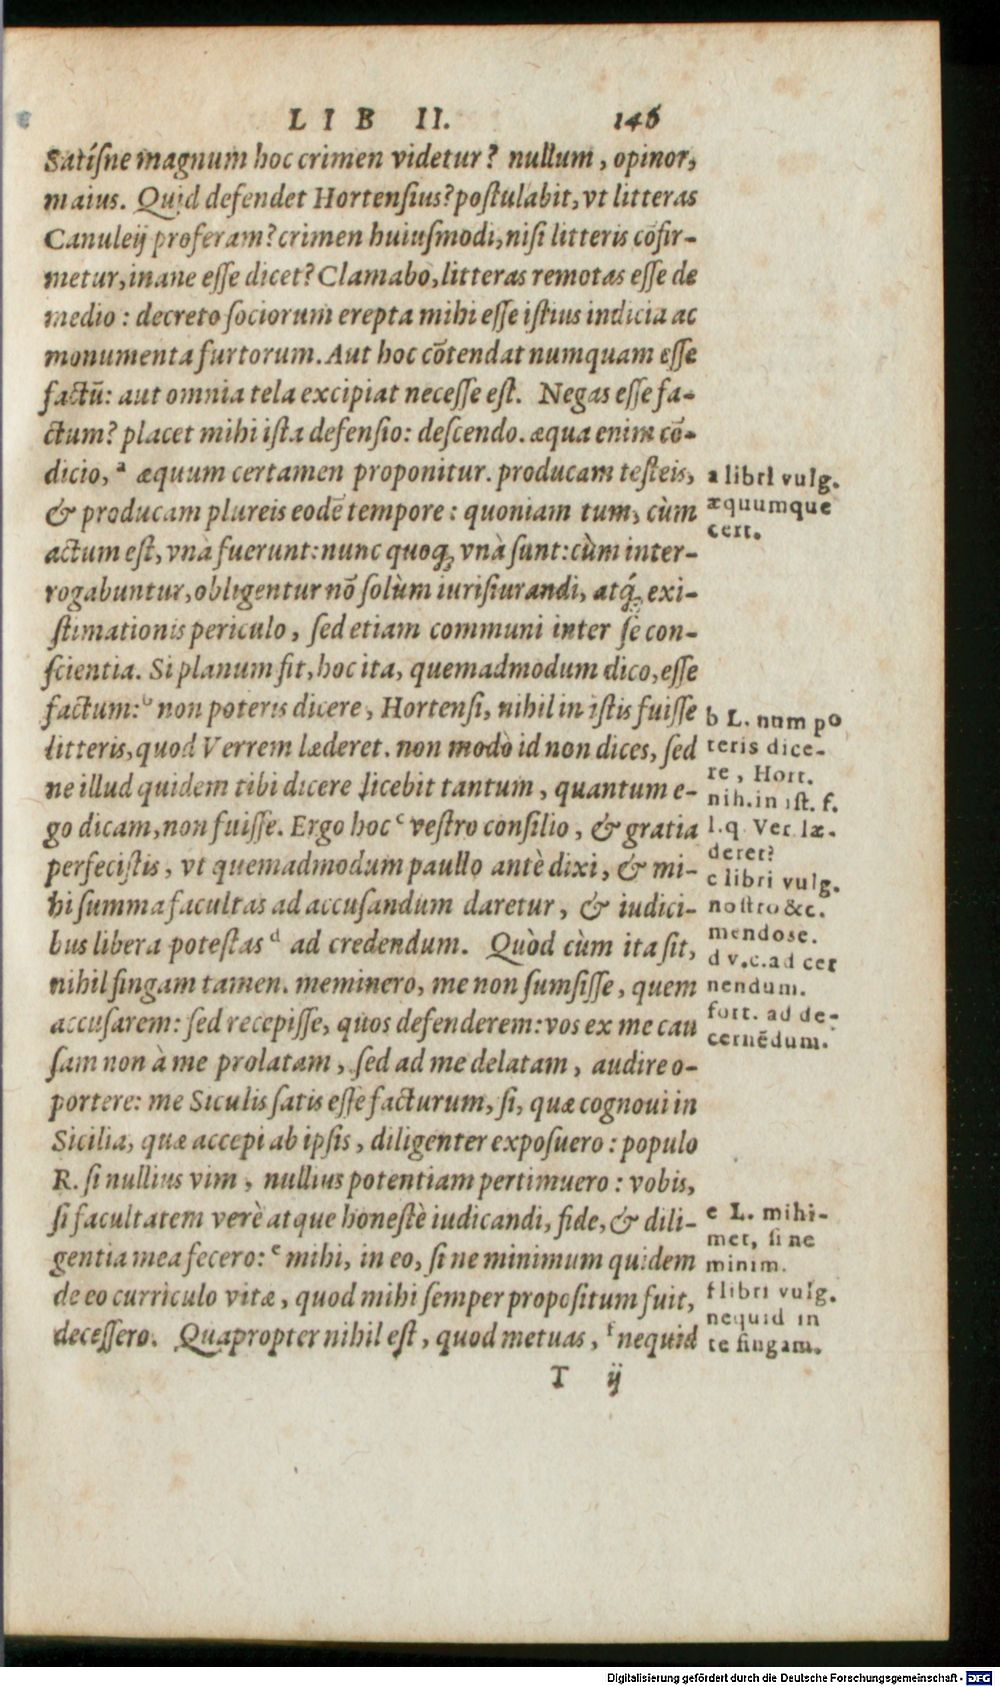 LIB II. 146
Satísne magnum hoc crimen videtur? nullum, opinor,
maius. Quid defendet Hortensius? postulabit, vt litteras
Canuleij proferam? crimen huiusmodi, nisi litteris cōfir-
metur, inane esse dicet? Clamabo, litteras remotas esse de
medio: decreto sociorum erepta mihi esse istius indicia ac
monumenta furtorum. Aut hoc cōtendat numquam esse
factū: aut omnia tela excipiat necesse est. Negas esse fa-
ctum? placet mihi ista defensio: descendo. æqua enim cō-
dicio, ª æquum certamen proponitur. producam testeis,
& producam plureis eodē tempore: quoniam tum, cùm
actum est, vnà fuerunt: nunc quoq; vnà sunt: cùm inter-
rogabuntur, obligentur nō solùm iurisiurandi, atq́; exi-
stimationis periculo, sed etiam communi inter se con-
scientia. Si planum fit, hoc ita, quemadmodum dico, esse
factum: ᵇ non poteris dicere, Hortensi, nihil in istis fuisse
litteris, quod Verrem læderet. non modò id non dices, sed
ne illud quidem tibi dicere licebit tantum, quantum e-
go dicam, non fuisse. Ergo hoc ᶜ vestro consilio, & gratia
perfecistis, vt quemadmodum paullo antè dixi, & mi-
hi summa facultas ad accusandum daretur, & iudici-
bus libera potestas ᵈ ad credendum. Quòd cùm ita sit,
nihil fingam tamen. meminero, me non sumsisse, quem
accusarem: sed recepisse, quos defenderem: vos ex me cau
sam non à me prolatam, sed ad me delatam, audire o-
portere: me Siculis satis esse facturum, si, quæ cognoui in
Sicilia, quæ accepi ab ipsis, diligenter exposuero: populo
R. si nullius vim, nullius potentiam pertimuero: vobis,
si facultatem verè atque honestè iudicandi, fide, & dili-
gentia mea fecero: ᵉ mihi, in eo, si ne minimum quidem
de eo curriculo vitæ, quod mihi semper propositum fuit,
decessero. Quapropter nihil est, quod metuas, ᶠ nequid
T ij
a libri vulg.
æquumque
cert.
b L. num po
teris dice-
re, Hort.
nih. in ist. f.
l. q Ver. læ-
deret?
c libri vulg.
nostro &c.
mendose.
d v.c. ad cer
nendum.
fort. ad de-
cernēdum.
e L. mihi-
met, si ne
minim.
f libri vulg.
nequid in
te fingam.
Digitalisierung gefördert durch die Deutsche Forschungsgemeinschaft - DFG